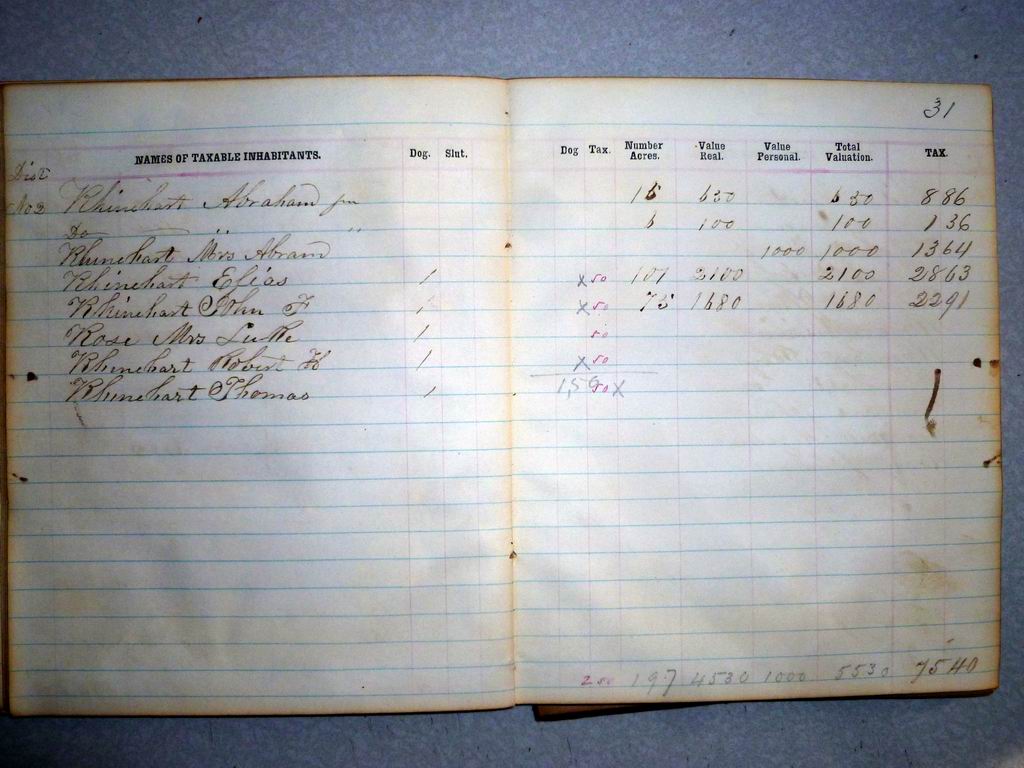 31
NAMES OF TAXABLE INHABITANTS. Dog. Slut. Dog Tax. Number Acres. Value Real. Value Personal. Total Valuation. TAX.
Dist
No 2 Rhinehart Abraham 15 650 650 886
Do " " 6 100 100 136
Rhinehart Mrs Abram 1000 1000 1364
Rhinehart Elias 1 x 50 101 2100 2100 2863
Rhinehart John F 1 x 50 75 1680 1680 2291
Rose Mrs 1 50
Rhinehart Robert H 1 x 50
Rhinehart Thomas 1 1,50 50 x
2 50 197 4530 1000 5530 7540